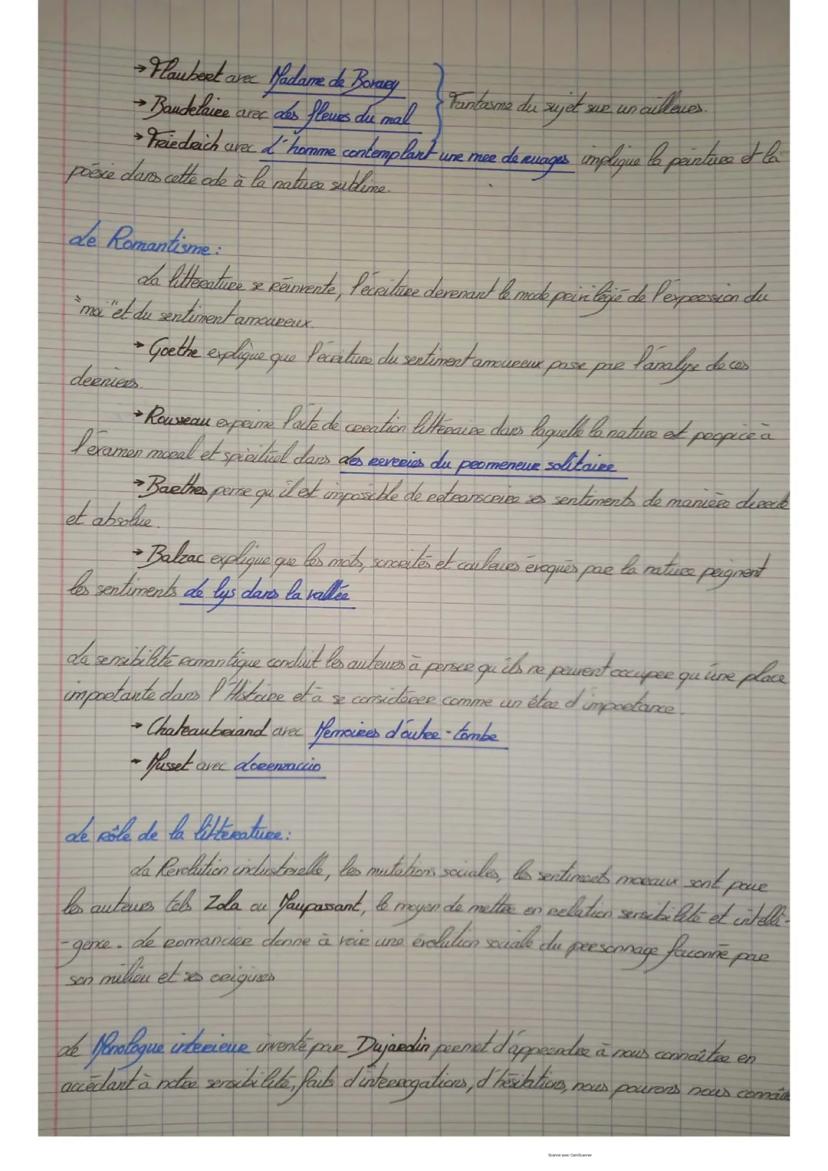 → Flaubert avec Madame de Bovary
→ Baudelaire avec Les fleurs du mal
} Fantasme du sujet sur un ailleurs.
→ Friedrich avec L'homme contemplant une mer de nuages implique la peinture et la
poésie dans cette ode à la nature sublime.
Le Romantisme :
La littérature se réinvente, l'écriture devenant le mode privilégié de l'expression du
"moi" et du sentiment amoureux.
→ Goethe explique que l'écriture du sentiment amoureux passe par l'analyse de ces
derniers.
→ Rousseau exprime l'acte de création littéraire dans laquelle la nature est propice à
l'examen moral et spirituel dans Les reveries du promeneur solitaire
→ Barthes pense qu'il est impossible de retranscrire ses sentiments de manière directe
et absolue.
→ Balzac explique que les mots, sonorités et couleurs évoqués par la nature peignent
les sentiments Le lys dans la vallée
La sensibilité romantique conduit les auteurs à penser qu'ils ne peuvent occuper qu'une place
importante dans l'Histoire et à se considérer comme un être d'importance.
→ Chateaubriand avec Mémoires d'outre-tombe
→ Musset avec Lorenzaccio
Le rôle de la littérature :
La Révolution industrielle, les mutations sociales, les sentiments moraux sont pour
les auteurs tels Zola ou Maupassant, le moyen de mettre en relation sensibilité et intelli-
-gence. Le romancier donne à voir une évolution sociale du personnage façonné par
son milieu et ses origines
Le Monologue intérieur inventé par Dujardin permet d'apprendre à nous connaître en
accédant à notre sensibilité, faits d'interrogations, d'hésitations, nous pouvons nous
Scanné avec CamScanner